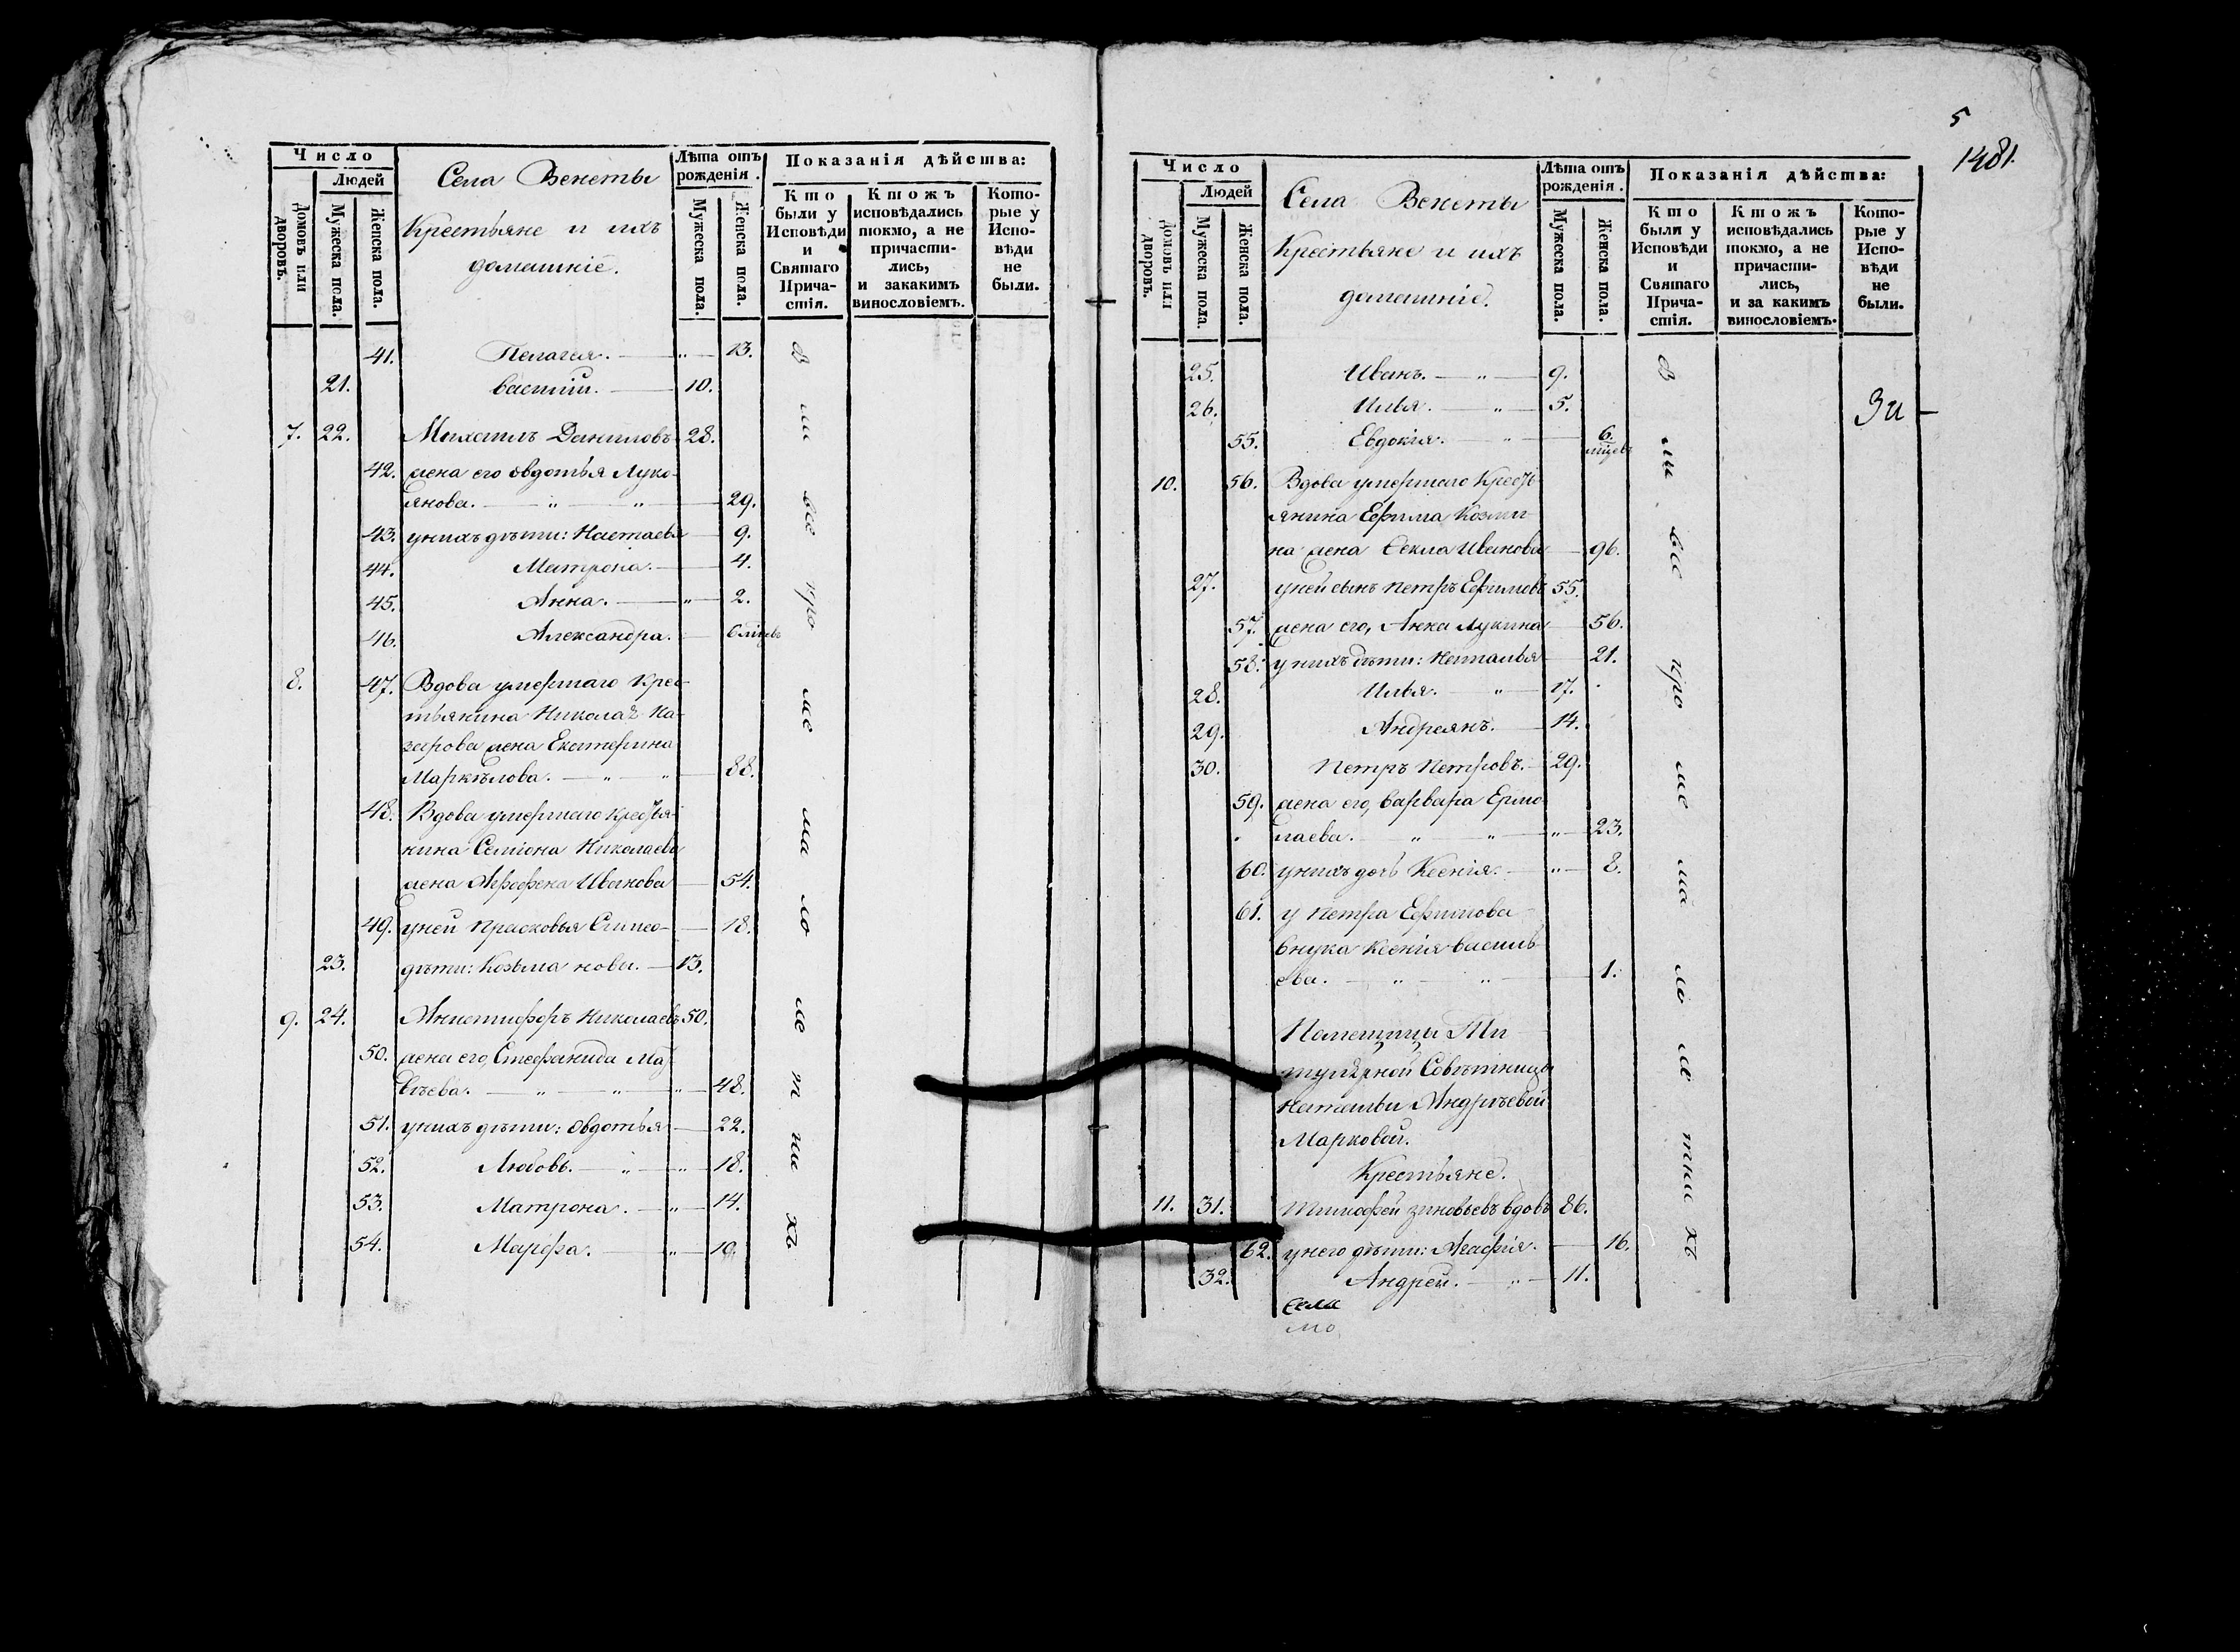 Число
Людей
Домовъ или дворовъ.
Мужеска пола.
Женска пола.
Села Венеты
Крестьяне и ихъ
домашніе.
Лѣта отъ рожденія.
Мужеска пола.
Женска пола.
Показанія дѣйства:
Кто были у Исповѣди и Святаго Причастія.
Ктожъ исповѣдались токмо, а не причастились, и закакимъ винословіемъ.
Которые у Исповѣди не были.
41. Пелагея. 13.
21. Васілій. 10.
7. 22. Михаилъ Даниловъ 28.
42. жена его Овдотья Луко-
янова. 29.
43. унихъ дѣти: Настасья 9.
44. Матрона. 4.
45. Анна. 2.
46. Александра. 6 мѣцевъ
8. 47. Вдова умершаго крес-
тьянина Николая На-
зарова жена Екатерина
Маркѣлова. 88.
48. Вдова умершаго крестья-
нина Семіона Николаева
жена Аграфена Иванова 54.
49. уней Прасковья Симео- 18.
23. дѣти: Козьма новы. 13.
9. 24. Анктиофоръ Николаевъ 50.
50. жена его, Стефанида Мат
вѣева. 48.
51. унихъ дѣти: Овдотья 22.
52. Любовь. 18.
53. Матрона. 14.
54. Марфа. 10.
В ы все про ме ма ло ле т ни хъ
5
1481.
Число
Людей
Домовъ или дворовъ.
Мужеска пола.
Женска пола.
Села Венеты
Крестьяне и ихъ
домашніе.
Лѣта отъ рожденія.
Мужеска пола.
Женска пола.
Показанія дѣйства:
Кто были у Исповѣди и Святаго Причастія.
Ктожъ исповѣдались токмо, а не причастились, и за какимъ винословіемъ.
Которые у Исповѣди не были.
25. Иванъ. 9.
26. Илья. 5.
55. Евдокія. 6. мѣцевъ
10. 56. Вдова умершаго Кресть
янина Ефима Козми
на жена Фекла Иванова 96.
27. уней сынъ Петръ Ефимовъ 55.
57. жена его, Анна Лукина 56.
58. у нихъ дѣти: Наталья 21.
28. Илья. 17.
29. Андреянъ. 14.
30. Петръ Петровъ. 29.
59. жена его, Варвара Ермо
лаева. 23.
60. унихъ дочь Ксенія. 8.
61. у Петра Ефимова
внука Ксенія Василь
ева. 1.
Помещицы Ти
тулярной Совѣтницы
Натальи Андрѣевой
Марковой.
Крестьяне.
11. 31. Тимофей Зиновьевъ вдовъ 86.
62. унего дѣти: Агафія. 16.
32. Андрей. 11.
Села